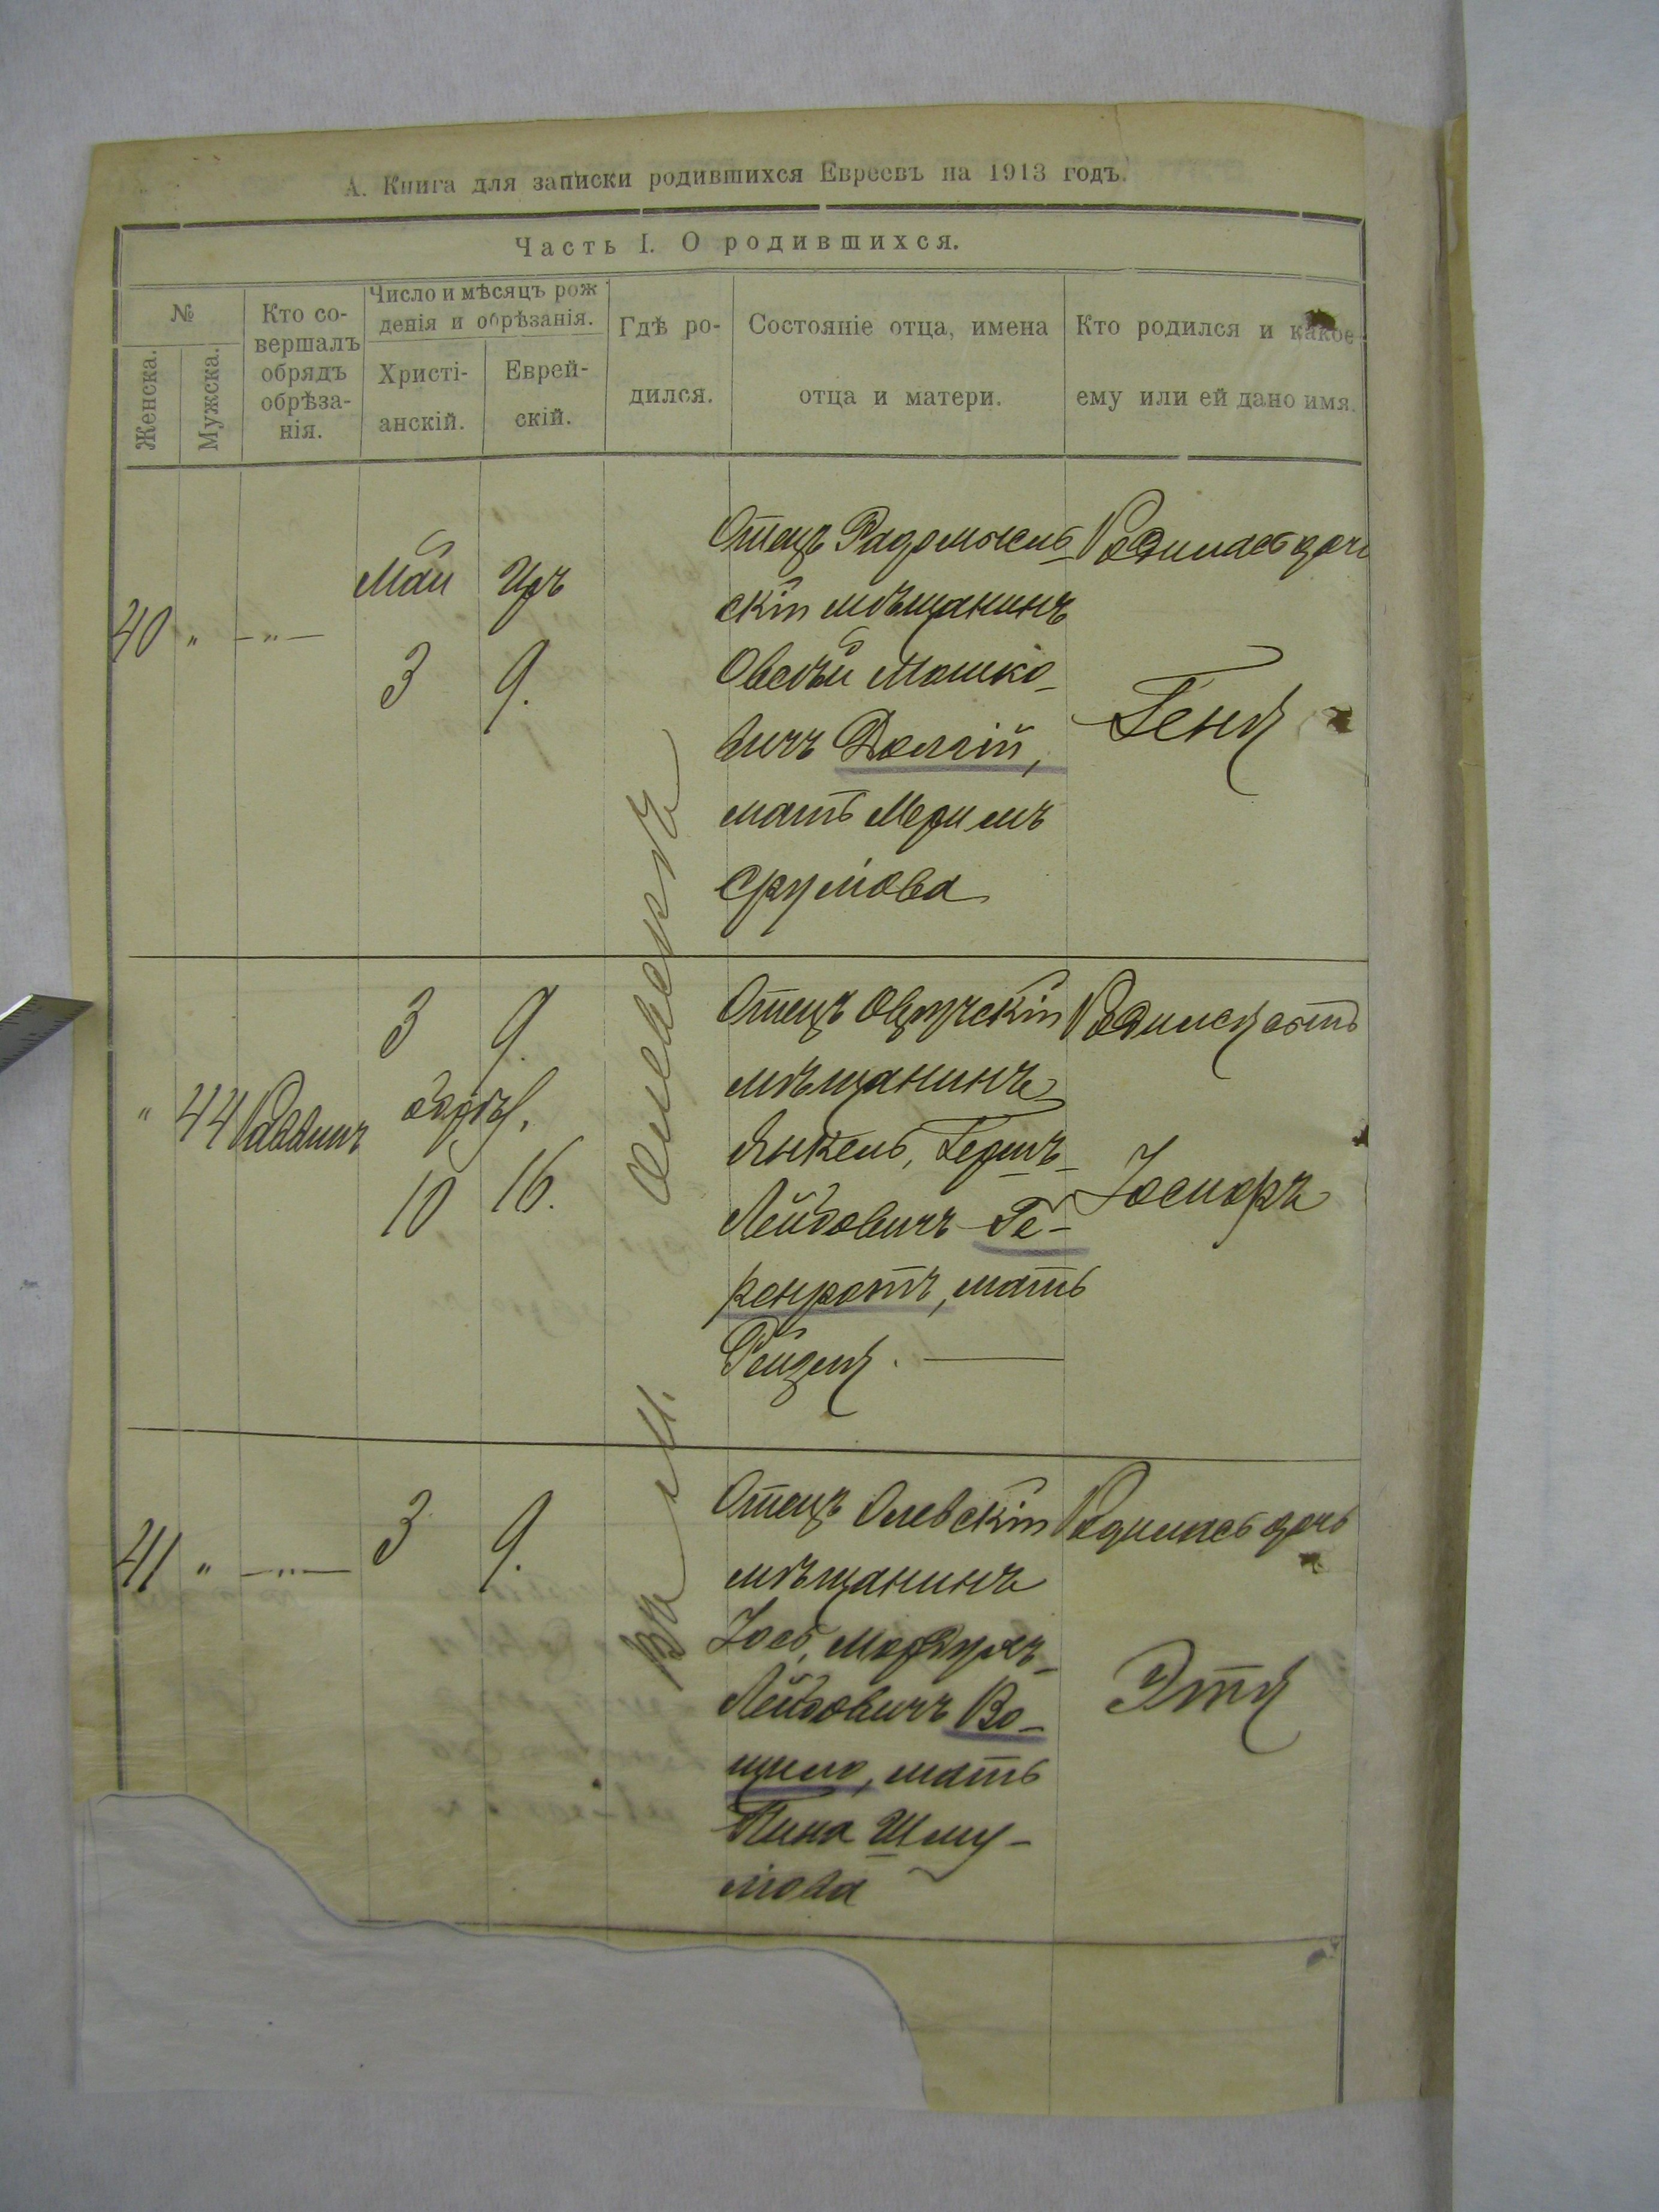 А. Книга для записки родившихся Евреевъ на 1913 годъ.
Часть I. О родившихся.
№
Женска.
Мужска.
Кто со-
вершалъ
обрядъ
обрѣза-
нія.
Число и мѣсяцъ рож
денія и обрѣзанія.
Христі-
анскій.
Еврей-
скій.
Гдѣ ро-
дился.
Состояніе отца, имена
отца и матери.
Кто родился и какое
ему или ей дано имя.
40 " —"—
Май
3
Иръ
9.
Въ м. Олевскѣ
Отецъ Радомысль-
скій мѣщанинъ
Овсѣй Мошко-
вичъ Долгій,
мать
Срулiова
Родилась дочь
Геня
" 44 Раввинъ
3
обрѣз.
10
9.
16.
Отецъ Овручскій
мѣщанинъ
Янкель, Гершъ-
Лейбовичъ Ге-
кенротъ, мать
Рейзля. —
Родился сынъ
Іосифъ
41 " —"—
3
9.
Отецъ Олевскій
мѣщанинъ
Іось, Мордухъ-
Лейбовичъ Во-
щило, мать
Шму-
лiова
Родилась дочь
Этя